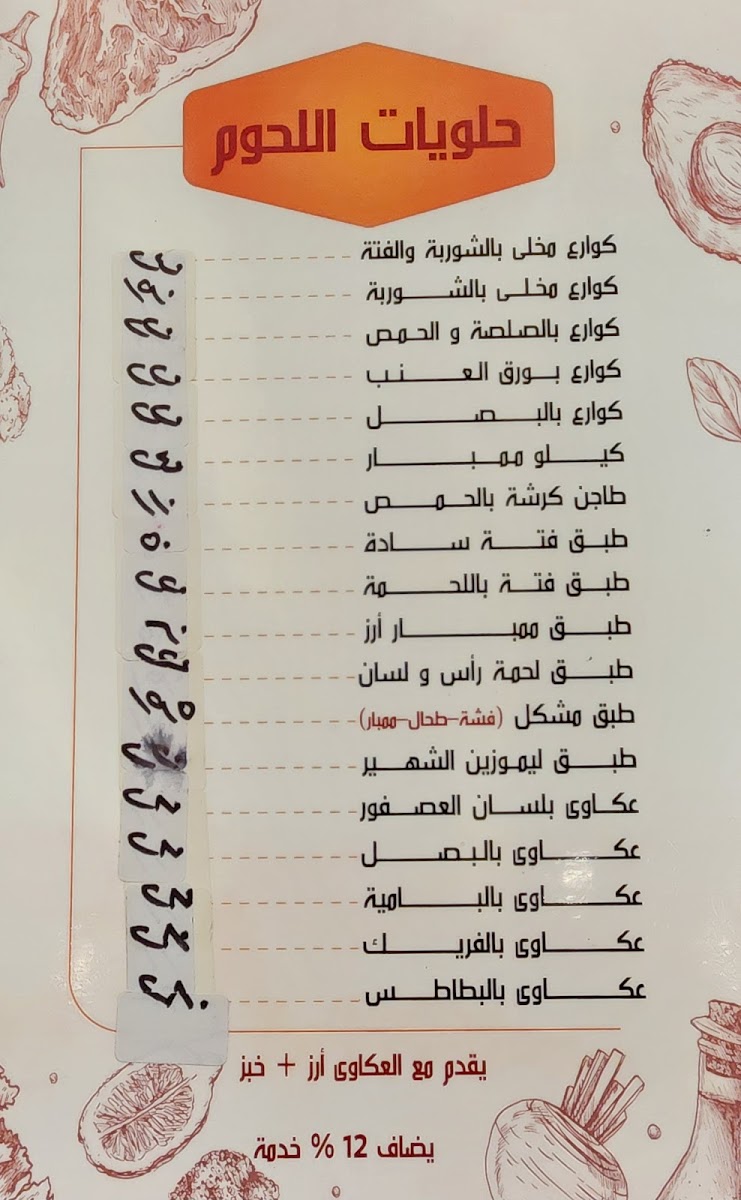 حلويات اللحوم
كوارع مخلى بالشوربة والفتة
كوارع مخلى بالشوربة
كوارع بالصلصة و الحمص
كوارع بورق العنب
كوارع بالبصل
كيلو ممبار
طاجن كرشة بالحمص
طبق فتة سادة
طبق فتة باللحمة
طبق ممبار أرز
طبق لحمة رأس و لسان
طبق مشكل (فشة-طحال-ممبار)
طبق ليموزين الشهير
عكاوى بلسان العصفور
عكاوى بالبصل
عكاوى بالبامية
عكاوى بالفريك
عكاوى بالبطاطس
يقدم مع العكاوى أرز + خبز
يضاف 12 % خدمة